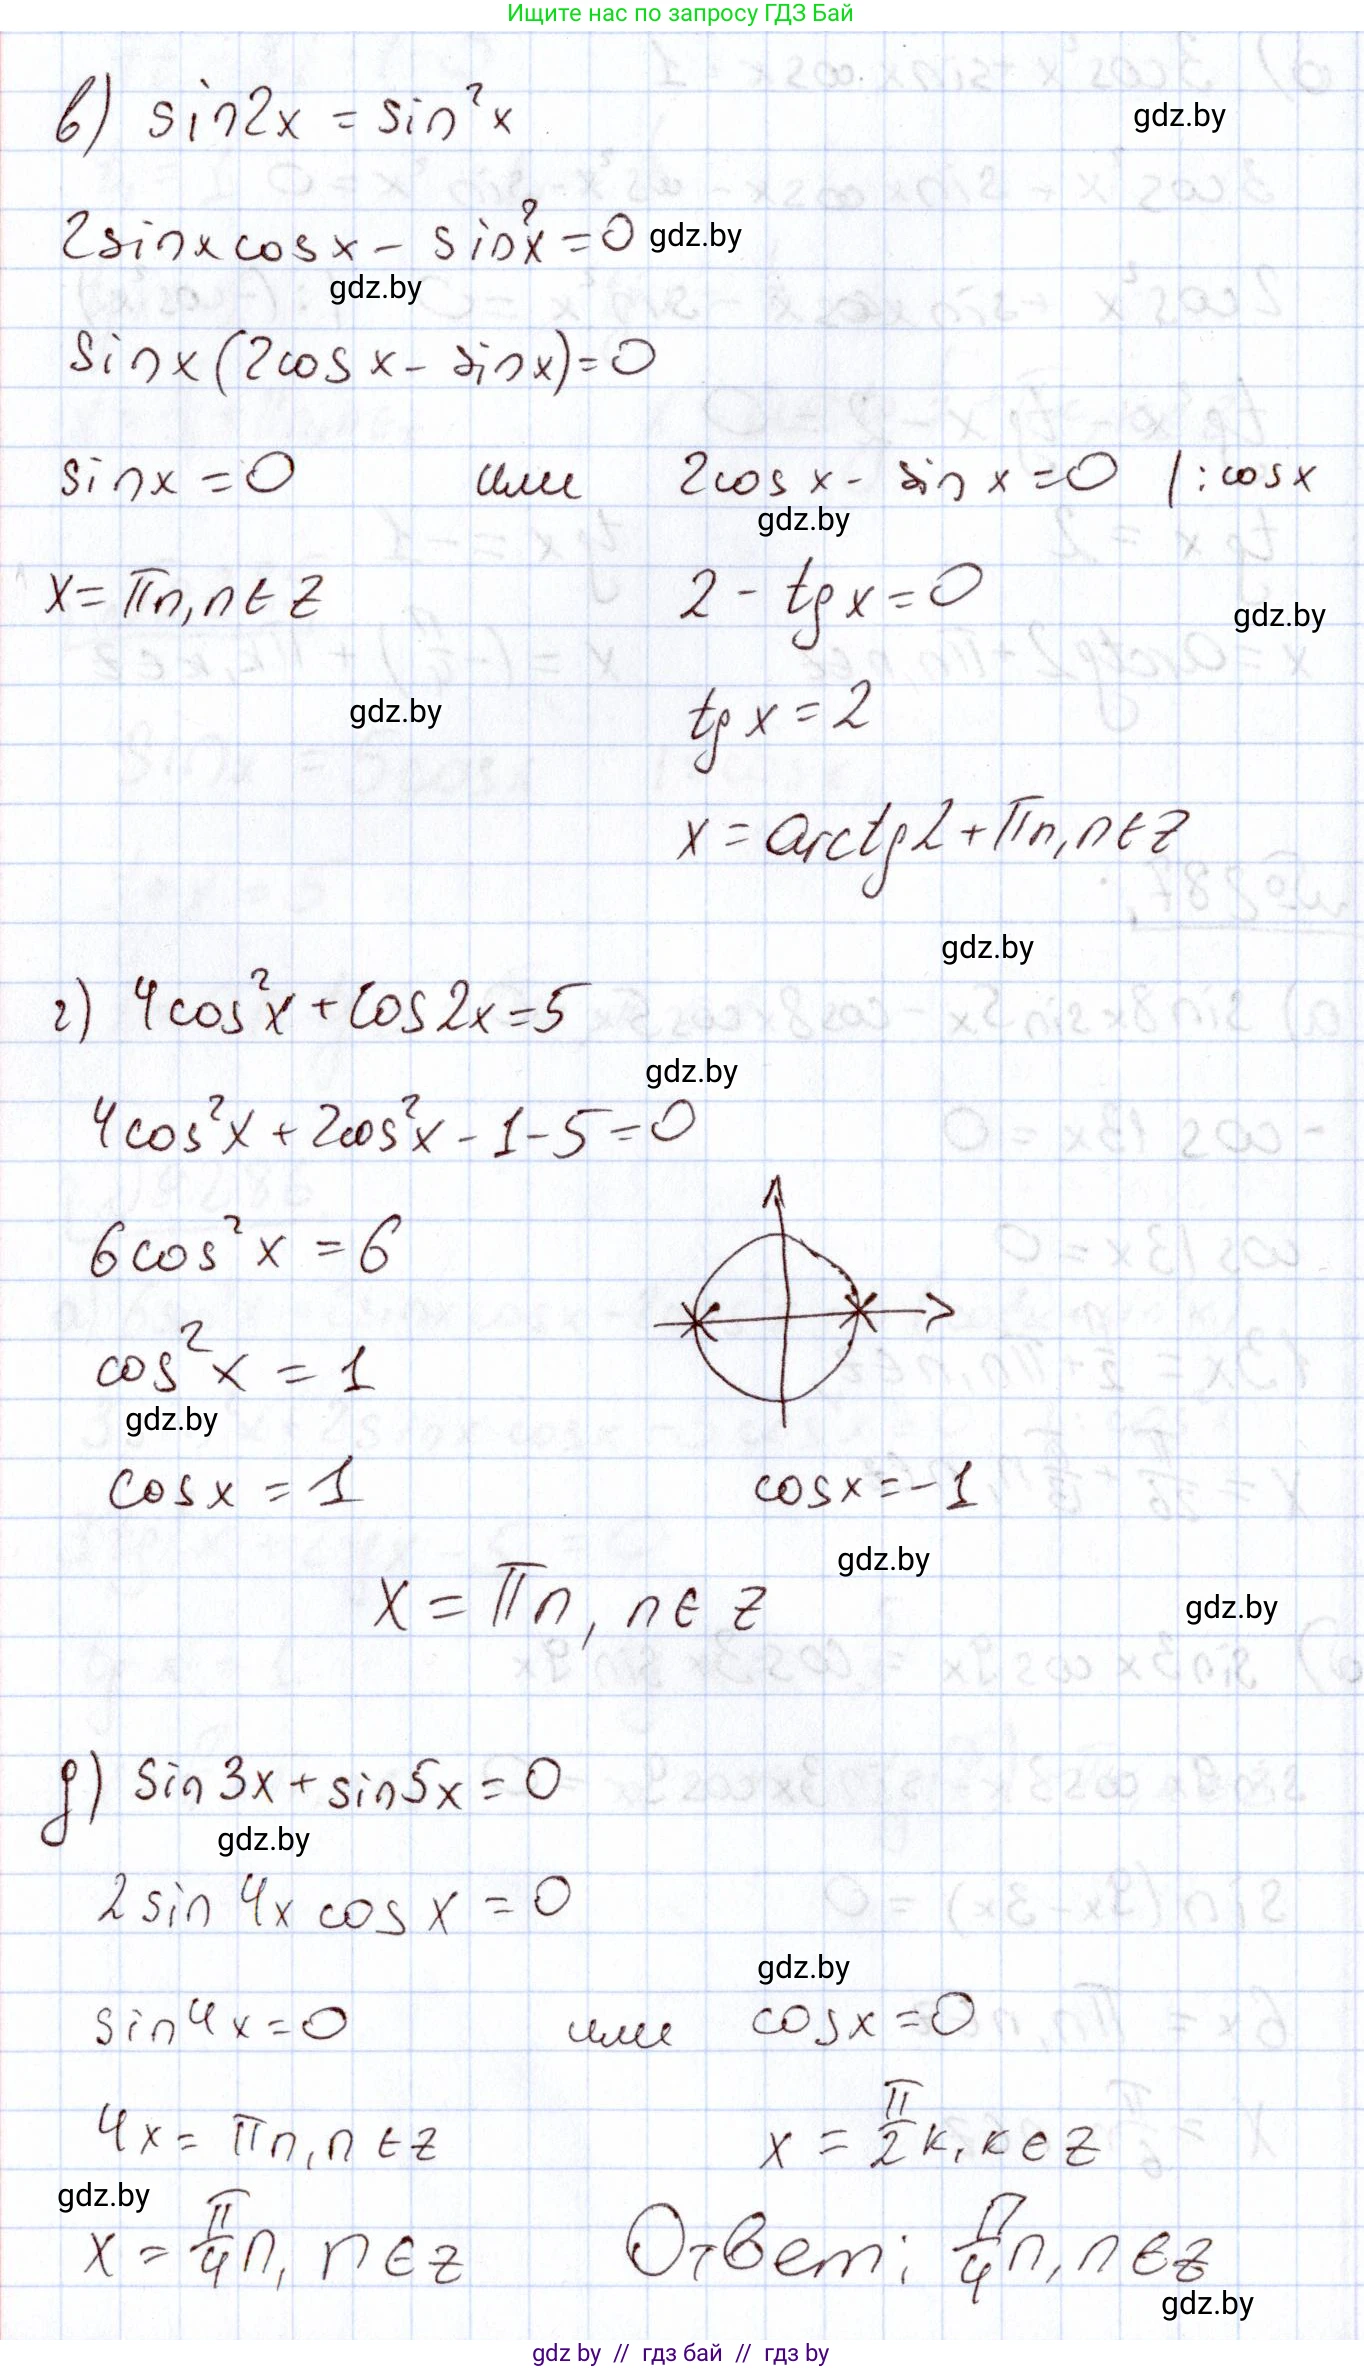 Ищите нас по запросу ГДЗ Бай
в) sin2x = sin²x
gdz.by
2sinxcosx - sin²x = 0
gdz.by
gdz.by
sinx(2cosx - sinx) = 0
sinx = 0 или 2cosx - sinx = 0 | : cosx
gdz.by
x = πn, n ∈ Z 2 - tgx = 0
gdz.by
gdz.by
tgx = 2
x = arctg2 + πn, n ∈ Z
gdz.by
г) 4cos²x + cos2x = 5
gdz.by
4cos²x + 2cos²x - 1 - 5 = 0
6cos²x = 6
cos²x = 1
gdz.by
cosx = 1 cosx = -1
gdz.by
x = πn, n ∈ Z
gdz.by
д) sin3x + sin5x = 0
gdz.by
2sin4x cosx = 0
gdz.by
sin4x = 0 или cosx = 0
4x = πn, n ∈ Z x = π/2 k, k ∈ Z
gdz.by
x = π/4 n, n ∈ Z Ответ: π/4 n, n ∈ Z
gdz.by
gdz.by // гдз бай // гдз by